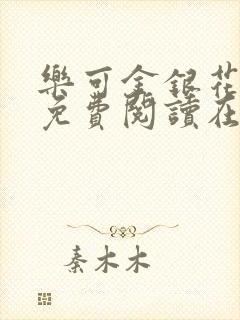 樂可金銀花
免費閱讀在
秦木木